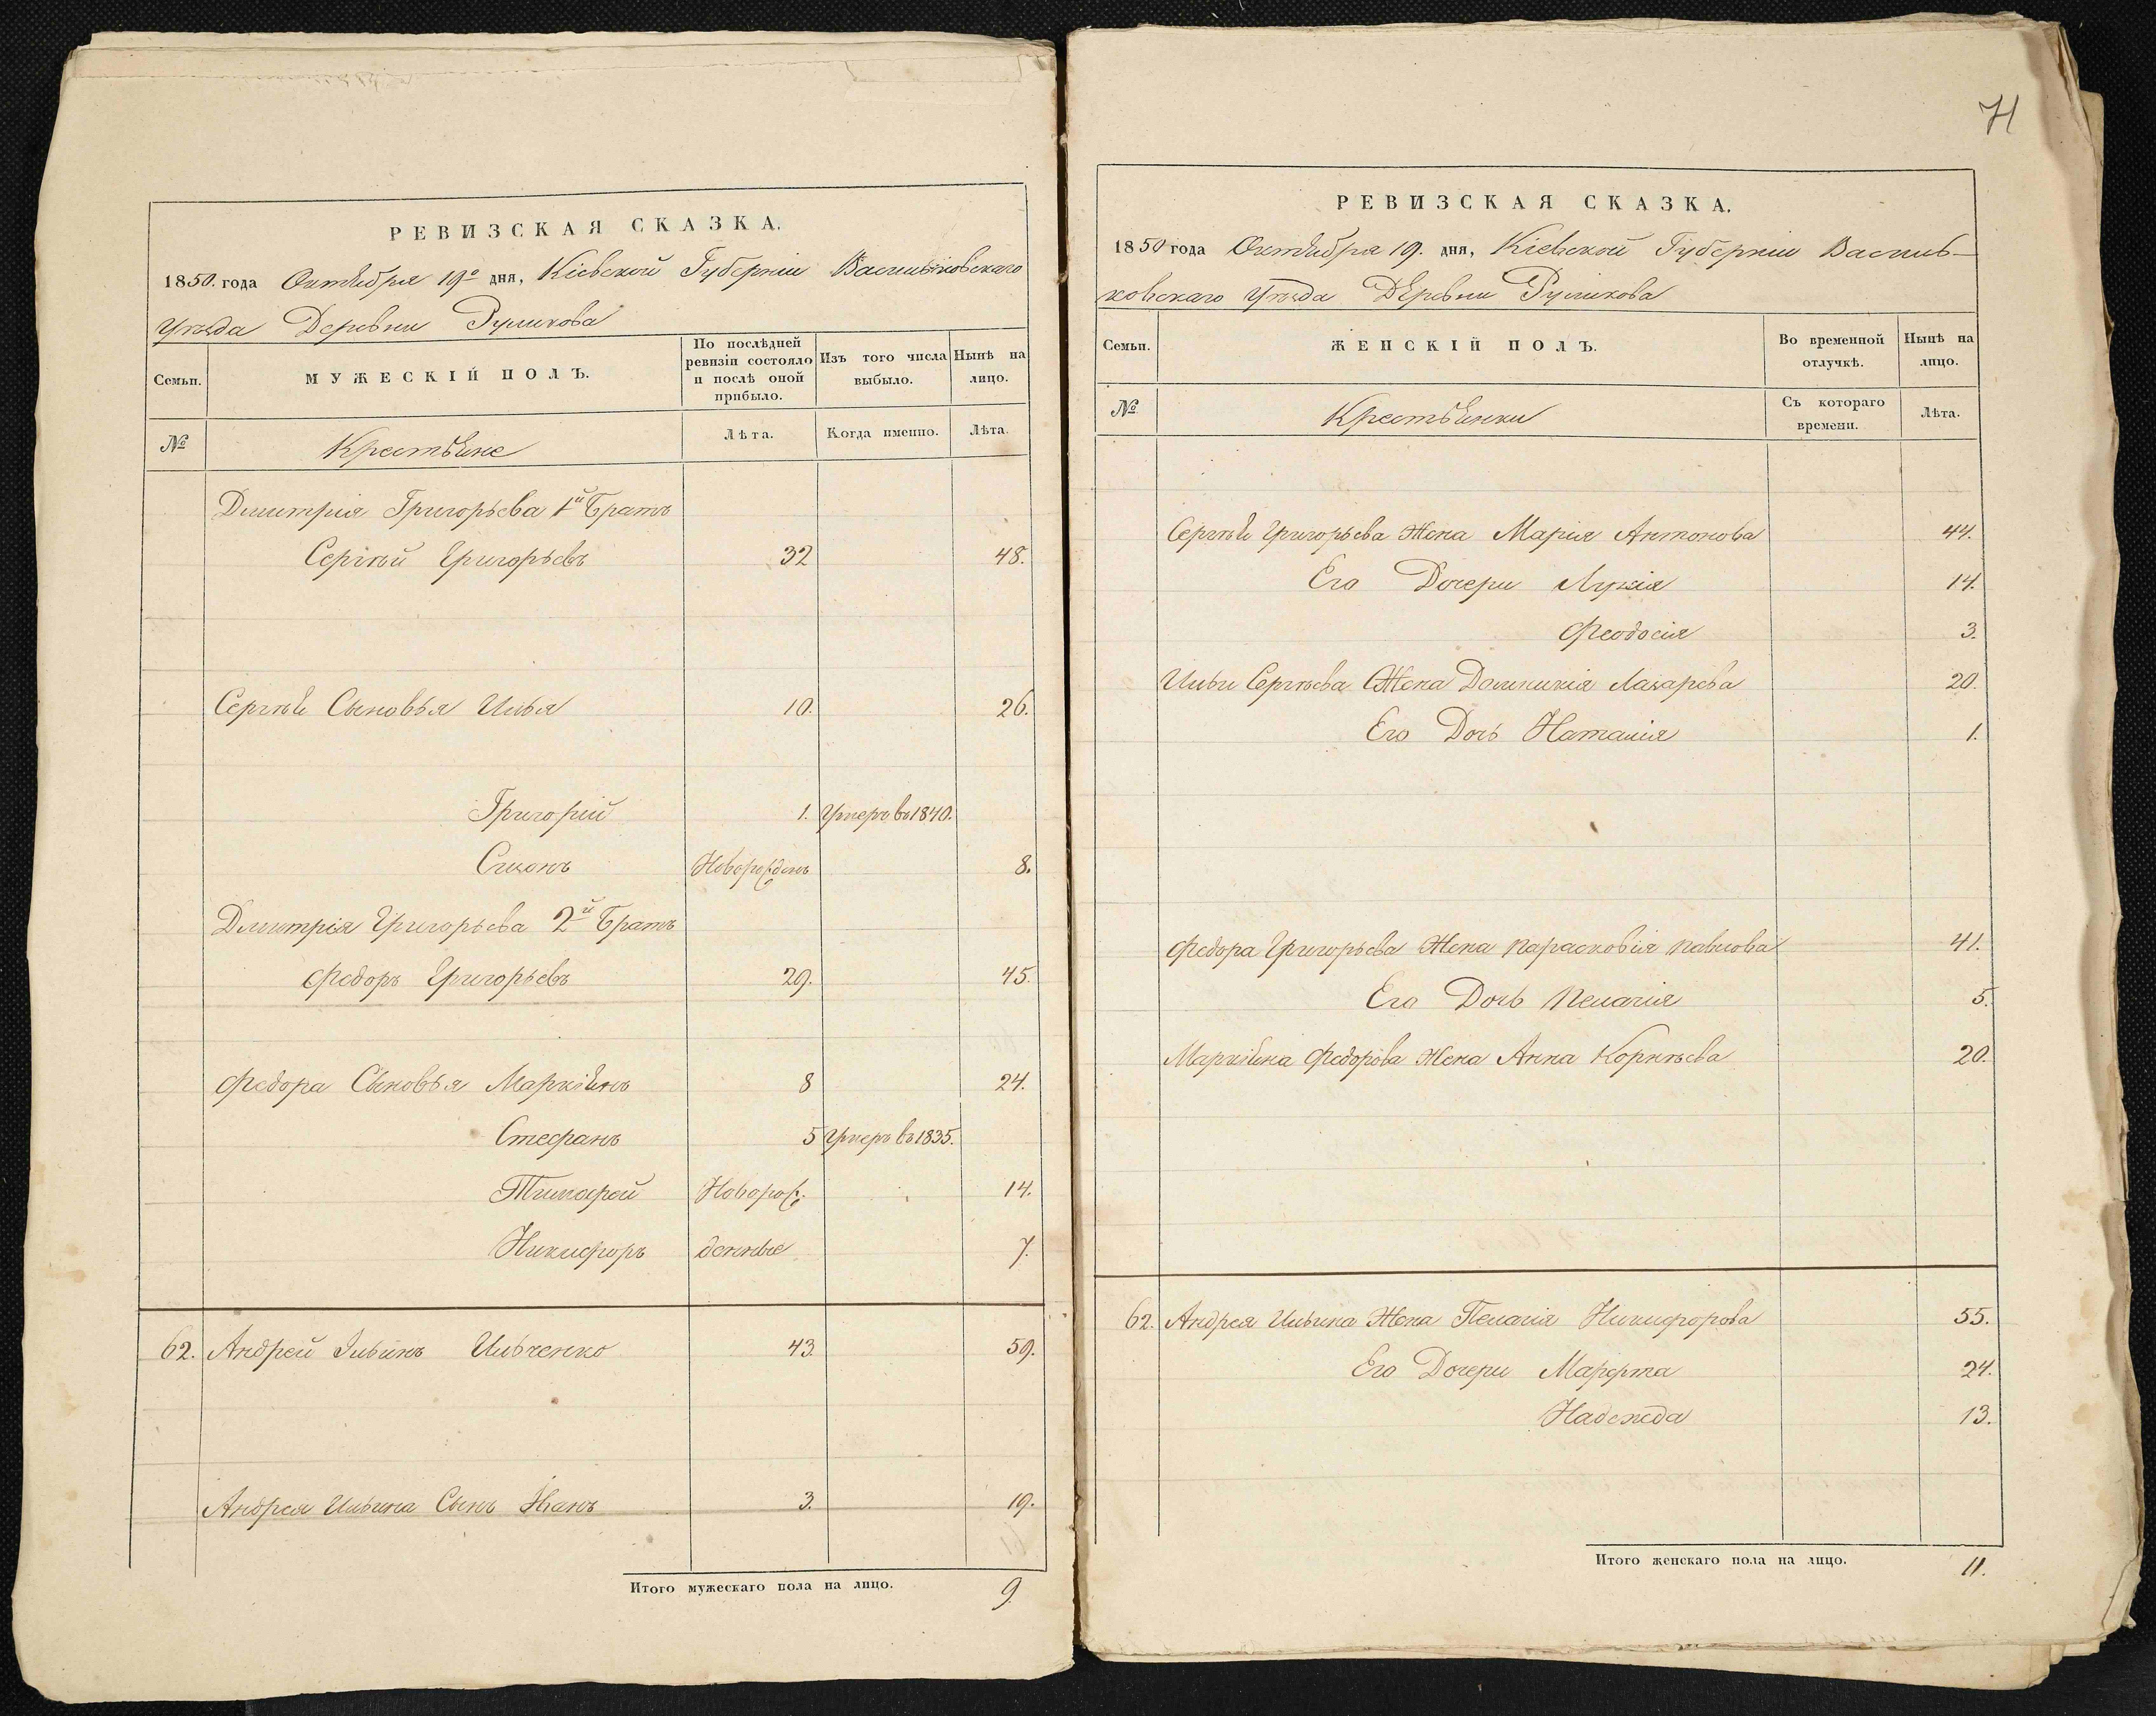 РЕВИЗСКАЯ СКАЗКА.
1850. года Октября 19го дня, Кіевской Губерніи Васильковскаго
Уѣзда Деревни Руликова
Семьи.
МУЖЕСКІЙ ПОЛЪ.
По послѣдней ревизіи состояло и послѣ оной прибыло.
Изъ того числа выбыло.
Нынѣ на лицо.
№
Крестьяне
Лѣта.
Когда именно.
Лѣта.
Дмитрія Григорьева 1й Братъ
Сергѣй Григорьевъ 32 48.
Сергѣя Сыновья Илья 10. 26.
Григорій 1. Умеръ въ 1840.
Симонъ Новорожденъ 8.
Дмитрія Григорьева 2й Братъ
Федоръ Григорьевъ 29. 45.
Федора Сыновья Маркіянъ 8 24.
Стефанъ 5 Умеръ въ 1835.
Тимофей Новорож 14.
Никифоръ денные 7.
62. Андрей Ильинъ Ильченко 43. 59.
Андрея Ильина Сынъ Иванъ 3. 19.
Итого мужескаго пола на лицо. 9.
71
РЕВИЗСКАЯ СКАЗКА.
1850 года Октября 19. дня, Кіевской Губерніи Василь-
ковскаго Уѣзда Деревни Руликова
Семьи.
ЖЕНСКІЙ ПОЛЪ.
Во временной отлучкѣ.
Нынѣ на лицо.
№
Крестьянки
Съ котораго времени.
Лѣта.
Сергѣя Григорьева Жена Марія Антонова 44.
Его Дочери Лукія 14.
Феодосія 3.
Ильи Сергѣева Жена Домникія Лазарева 20.
Его Дочь Наталія 1.
Федора Григорьева Жена Парасковія Павлова 41.
Его Дочь Пелагія 5.
Маркіяна Федорова Жена Анна Корнѣева 20.
62. Андрея Ильина Жена Пелагія Никифорова 55.
Его Дочери Марфта 24.
Надежда 13.
Итого женскаго пола на лицо. 11.